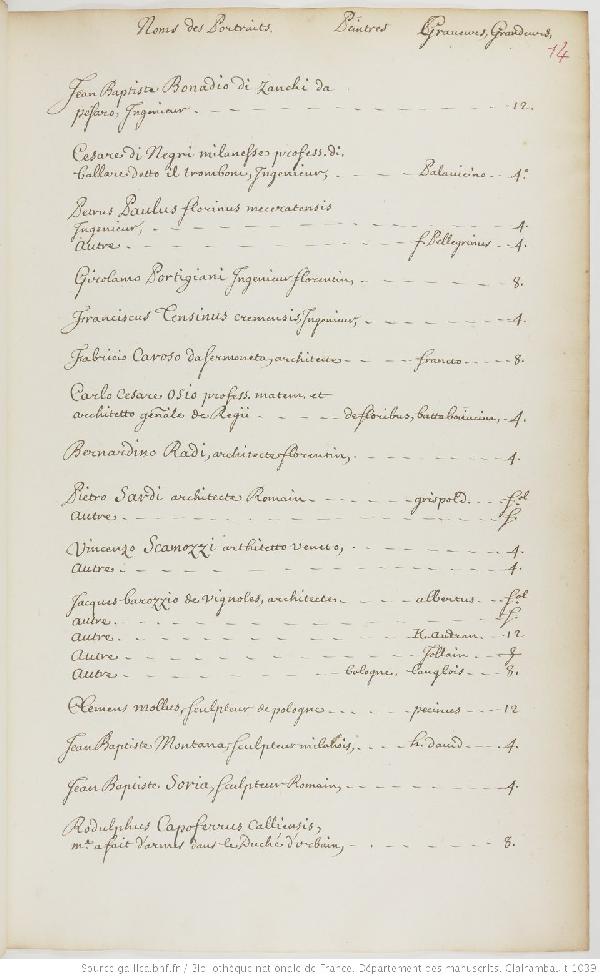 Noms des Portraits. Peintres Graveurs, Grandeurs,
14
Jean Baptiste Bonadio di Zanchi da
pesaro, Ingenieur. 12.
Cesare di Negri milanesse profess. di
ballare detto il trombone, Ingenieur, Palavicino 4.º
Petrus Paulus florinus meceratensis
Ingenieur, 4.
Autre f. Pellegrinus 4.
Girolamo Portigiani Ingenieur florentin, 8.
Franciscus Tensinus cremensis, Ingenieur, 4.
Fabricio Caroso da sermoneta, architecte franco 8.
Carlo Cesare Osio profess. matem. et
architetto gñale de Regii de floribus, 4.
Bernardino Radi, architecte florentin, 4.
Pietro Sardi architecte Romain grispold fol
Autre f.
Vincenzo Scamozzi arthitetto veneto, 4.
Autre 4.
Jacques barozzio de vignoles, architecte albertus fol
autre f.
Autre K. Audran 12
Autre Jollain
Autre bologne. Langlois 8.
Clemens mollus, sculpteur de pologne pecinus 12
Jean Baptiste Montana, sculpteur milanois, h. david 4.
Jean Baptiste Soria, sculpteur Romain, 4.
Rodulphus Capoferrus Calliensis,
m.e a fait d'armes dans le Duché d'urbain, 8.
Source gallica.bnf.fr / Bibliothèque nationale de France. Département des manuscrits. Clairambault 1039